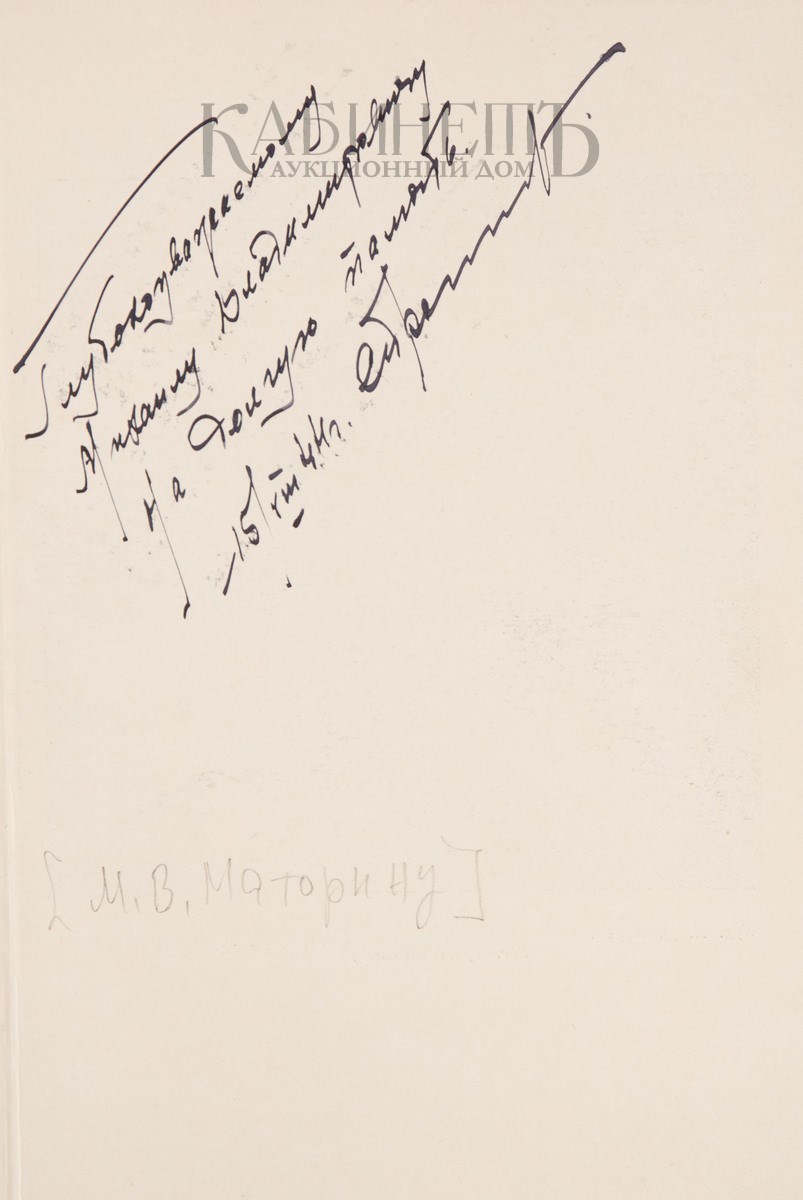 КАБИНЕТЪ
АУКЦИОННЫЙ ДОМ
Глубокоуважаемому
Михаилу Владимировичу
На Долгую Память.
15/VIII 44 г.
[М. В. Маторину]